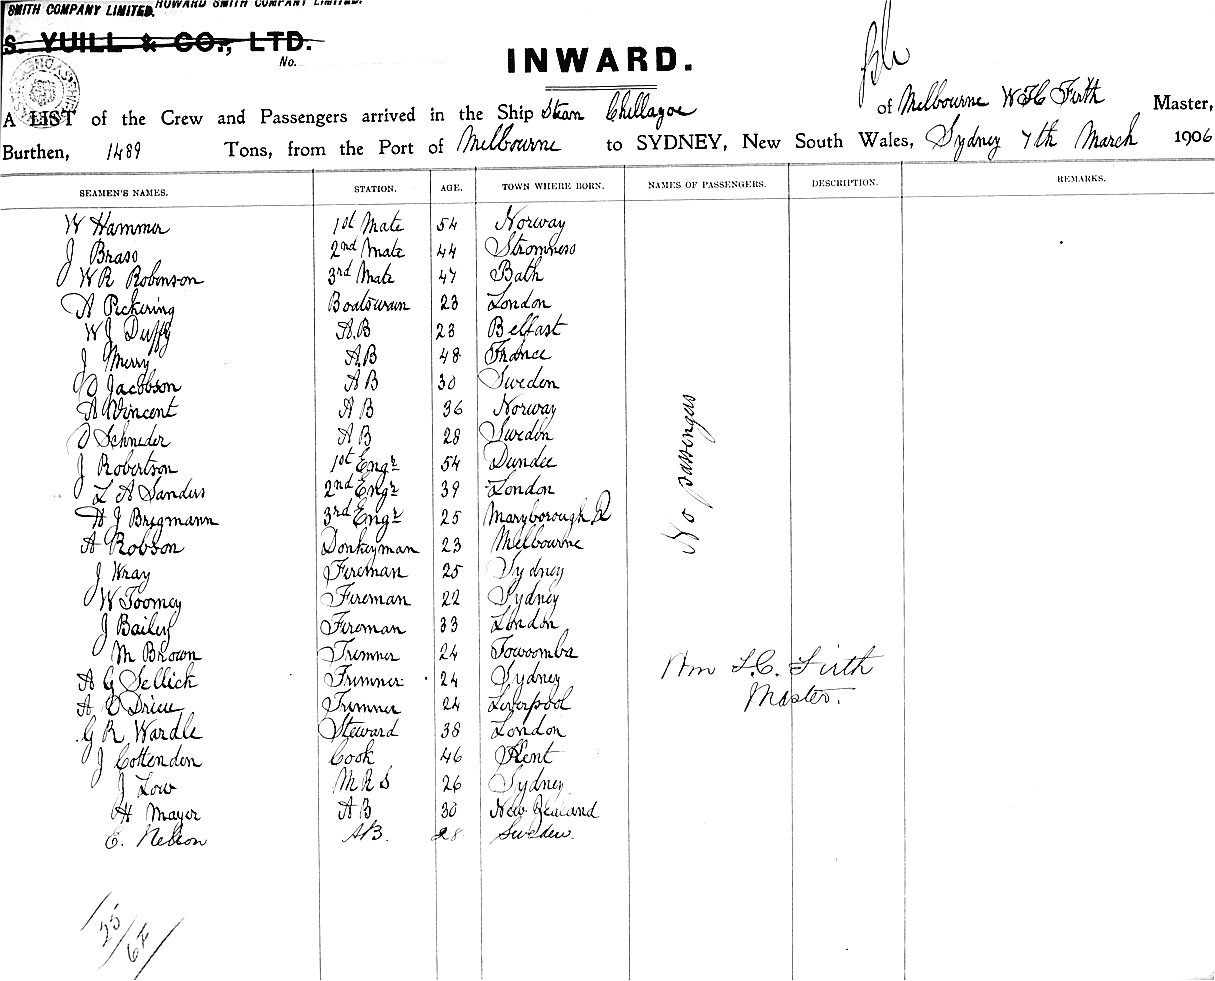 SMITH COMPANY LIMITED. HOWARD SMITH COMPANY LIMITED.
S. YUILL & CO., LTD.
No.
INWARD.
A LIST of the Crew and Passengers arrived in the Ship Steam Chillagoe of Melbourne W T C Firth Master,
Burthen, 1489 Tons, from the Port of Melbourne to SYDNEY, New South Wales, Sydney 7th March 1906
SEAMEN'S NAMES. STATION. AGE. TOWN WHERE BORN. NAMES OF PASSENGERS. DESCRIPTION. REMARKS.
W Hammer 1st Mate 54 Norway
J Brass 2nd Mate 44 Stromness
W R Robinson 3rd Mate 47 Bath
A Pickering Boatswain 23 London
W J Duffy A.B 23 Belfast
J Merry A.B 48 France
O Jacobson A B 30 Sweden
A Vincent A B 36 Norway
O Schneder A B 28 Sweden
J Robertson 1st Engr 54 Dundee
L A Sanders 2nd Engr 39 London
A J Bregmann 3rd Engr 25 Maryborough Q
A Robson Donkeyman 23 Melbourne
J Wray Fireman 25 Sydney
W Toomey Fireman 22 Sydney
J Bailey Fireman 33 London
M Brown Trimmer 24 Towoomba
A G Sellick Trimmer 24 Sydney
A E Trimmer 24 Liverpool
G R Wardle Steward 38 London
J Cottenden Cook 46 Kent
J Low M R S 26 Sydney
H Mayor A B 30 New Zealand
E. Nelson A.B. 28 Sweden.
No passengers
Wm T.C. Firth
Master.
25/